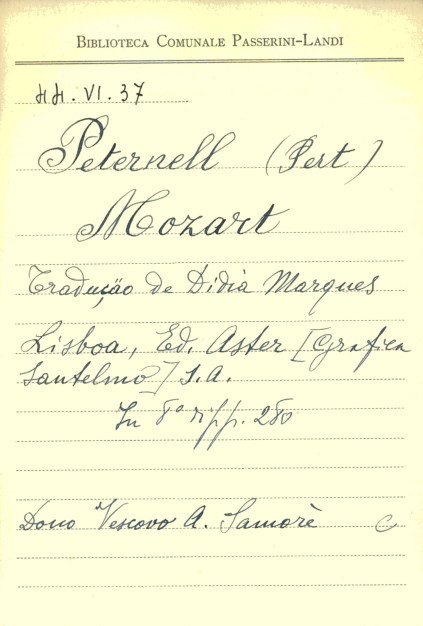 BIBLIOTECA COMUNALE PASSERINI-LANDI
VI.37
Peternell (Pert)
Mozart
Tradução de Didia Marques
Lisboa, Ed. Aster [Grafica
Santelmo] S.A.
In 8° pp. 280
Dono Vescovo A. Samorè C